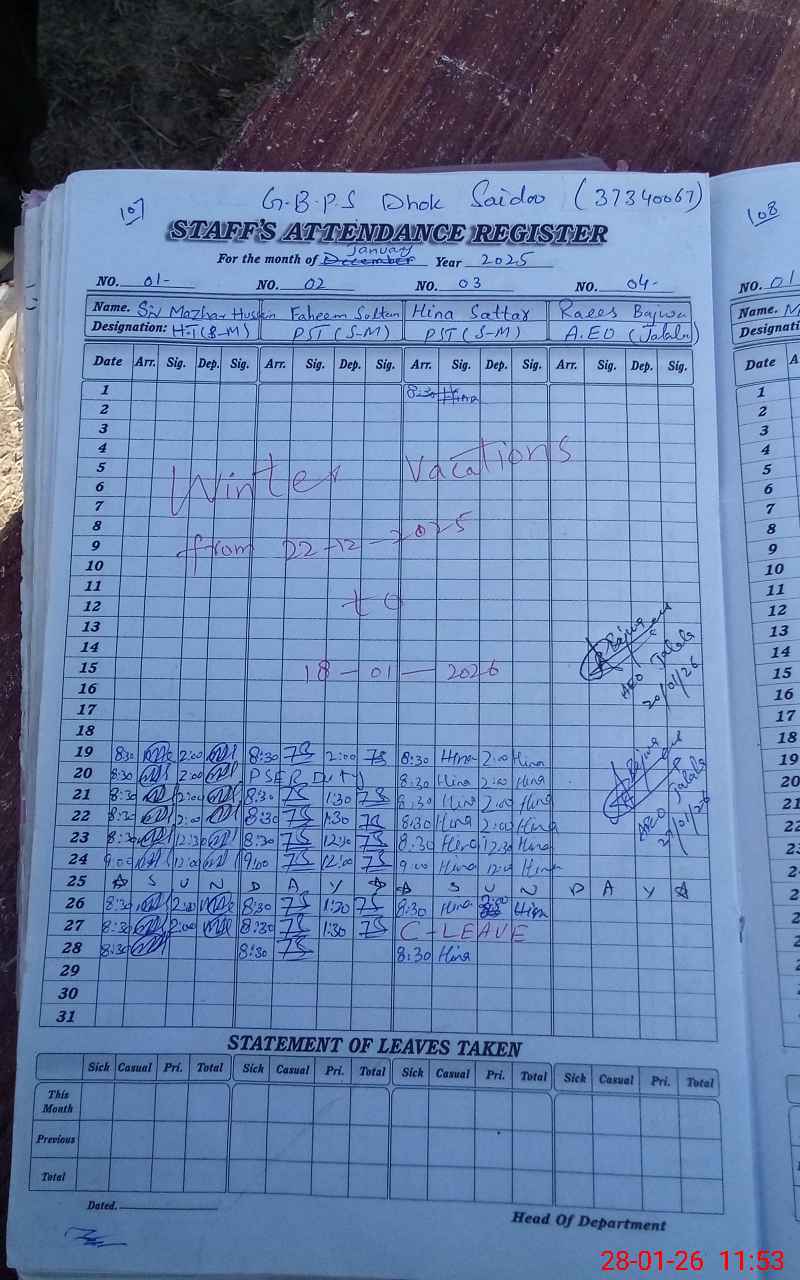 107
G.B.P.S Dhok Saidoo (37340067)
108
STAFF'S ATTENDANCE REGISTER
January
For the month of December Year 2025
NO. 01- NO. 02 NO. 03 NO. 04-
NO. 01
Name. Mazhar Hussain Faheem Sultan Hina Sattar Raees Bajwa
Name.
Designation: H.T(S-M) PST(S-M) PST(S-M) A.EO (Jalala)
Date Arr. Sig. Dep. Sig. Arr. Sig. Dep. Sig. Arr. Sig. Dep. Sig. Arr. Sig. Dep. Sig.
Date
1 8:30 Hina
2
3
4
5
6
7
8
9
10
11
12
13
14
15
16
17
18
Winter Vacations
from 22-12-2025
to
18-01-2026
Bajwa
AEO Jalala
20/01/26
19 8:30 2:00 8:30 2:00 8:30 Hina 2:00 Hina
20 8:30 2:00 PSER Duty 8:30 Hina 2:00 Hina
21 8:30 2:00 8:30 1:30 8:30 Hina 2:00 Hina
22 8:30 2:00 8:30 1:30 8:30 Hina 2:00 Hina
23 8:30 12:30 8:30 12:30 8:30 Hina 12:30 Hina
24 9:00 12:00 9:00 12:00 9:00 Hina 12:00 Hina
25 S U N D A Y S U N D A Y
26 8:30 2:00 8:30 1:30 8:30 Hina 2:00 Hina
27 8:30 2:00 8:30 1:30 C-LEAVE
28 8:30 8:30 8:30 Hina
29
30
31
Bajwa
AEO Jalala
STATEMENT OF LEAVES TAKEN
Sick Casual Pri. Total Sick Casual Pri. Total Sick Casual Pri. Total Sick Casual Pri. Total
This Month
Previous
Total
Dated.
Head Of Department
28-01-26 11:53